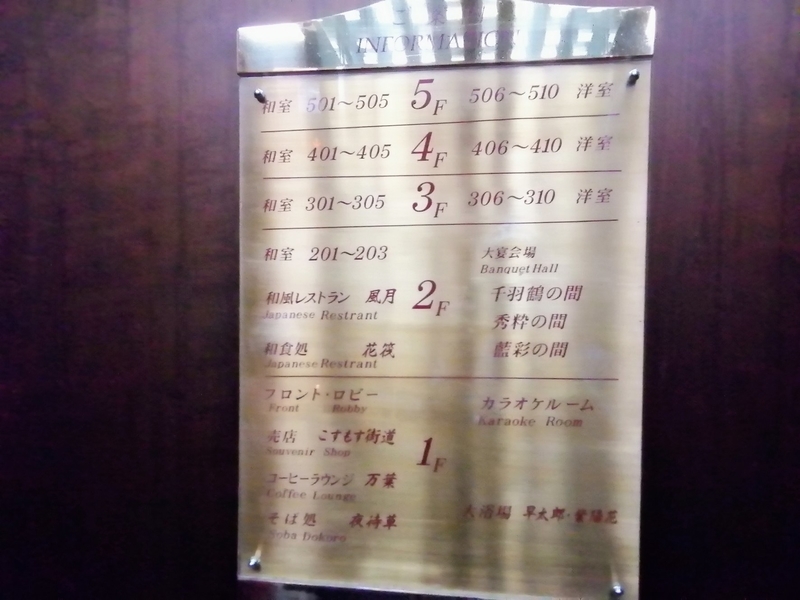 INFORMATION
和室 501～505 5F 506～510 洋室
和室 401～405 4F 406～410 洋室
和室 301～305 3F 306～310 洋室
和室 201～203
大宴会場
Banquet Hall
和風レストラン 風月
Japanese Restrant
2F
千羽鶴の間
秀粋の間
藍彩の間
和食処 花筏
Japanese Restrant
フロント・ロビー
Front Robby
カラオケルーム
Karaoke Room
売店 こすもす街道
Souvenir Shop
1F
コーヒーラウンジ 万葉
Coffee Lounge
そば処 夜待草
Soba Dokoro
大浴場 早太郎・紫陽花